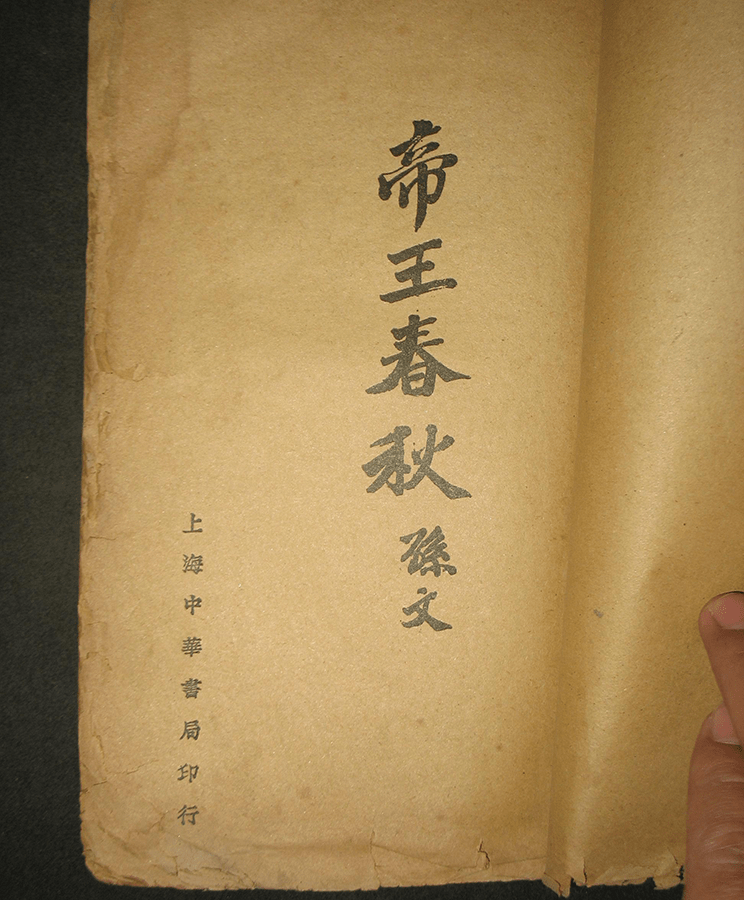 帝王春秋
孫文
上海中華書局印行